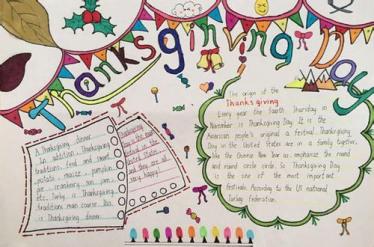 Thanksginving Day
The origin of the
Thanks giving
Every year the fourth Thursday in
November is Thanksgiving Day. It is the
American people's original a festival. Thanksgiving
Day in the United States are in a family together,
like the Chinese New Year as, emphasize the round
and round the circle. So Thanksgiving Day
is the one of the most important
festivals. According to the US national
Turkey Federation.
A Thanksgiving dinner.
In addition, Thanksgiving
traditions food and sweet
potato, maize, pumpkin
pie, cranberry jam
etc. Turkey is Thanksgiving
traditions main course. Day
is Thanksgiving dinner.
Thanksgiving
United
States and
they are all
very happy!